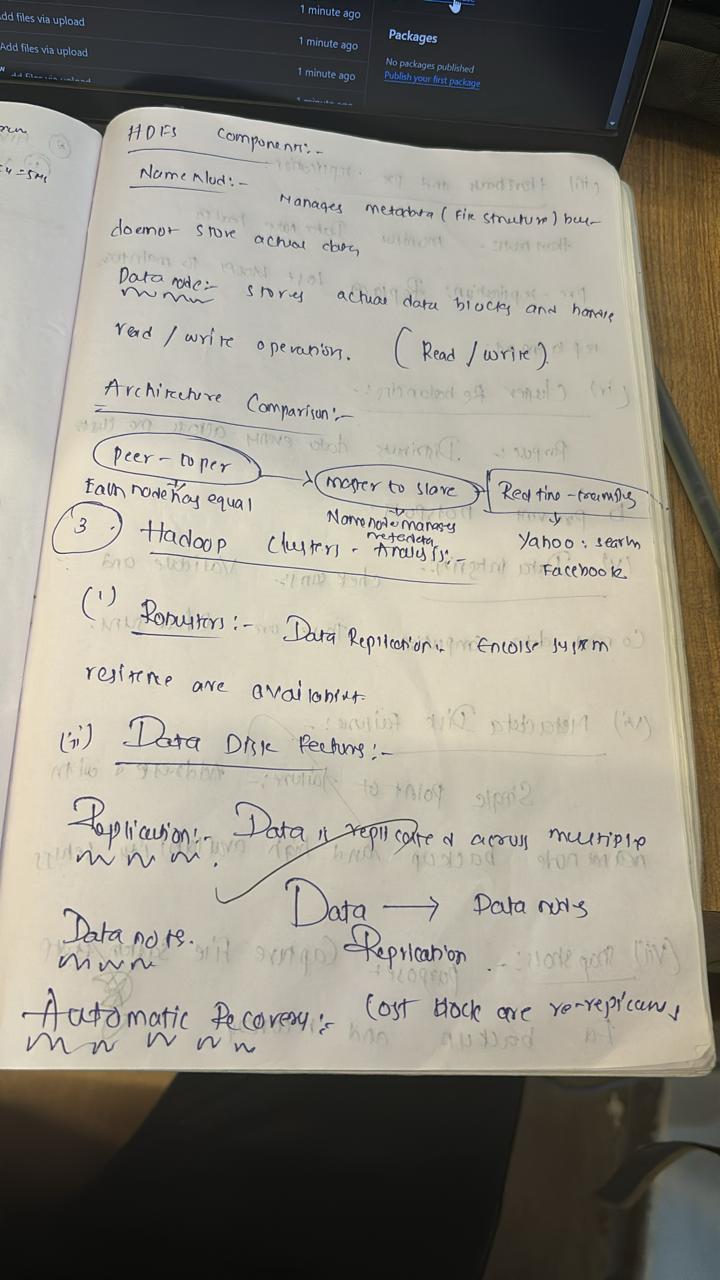 dd files via upload
1 minute ago
Add files via upload
1 minute ago
1 minute ago
Packages
No packages published
Publish your first package
HDFS Components:-
NameNod:-
Manages metadata (File Structure) but
doesnot store actual data,
Data node:- stores actual data blocks and handle
read / write operation. (Read / write)
Architecture Comparison:-
Peer-to per
master to slave
Each node has equal
Namenode manages
metadata
Yahoo : search
Facebook
3 Hadoop Clusters - Analysis:-
(i) Data Replication:- system
are
(ii) Data Disk :-
Replication:- Data is replicated across multiple
Data → Data nods
Replication
Data nods.
Automatic Recovery:- Lost block are